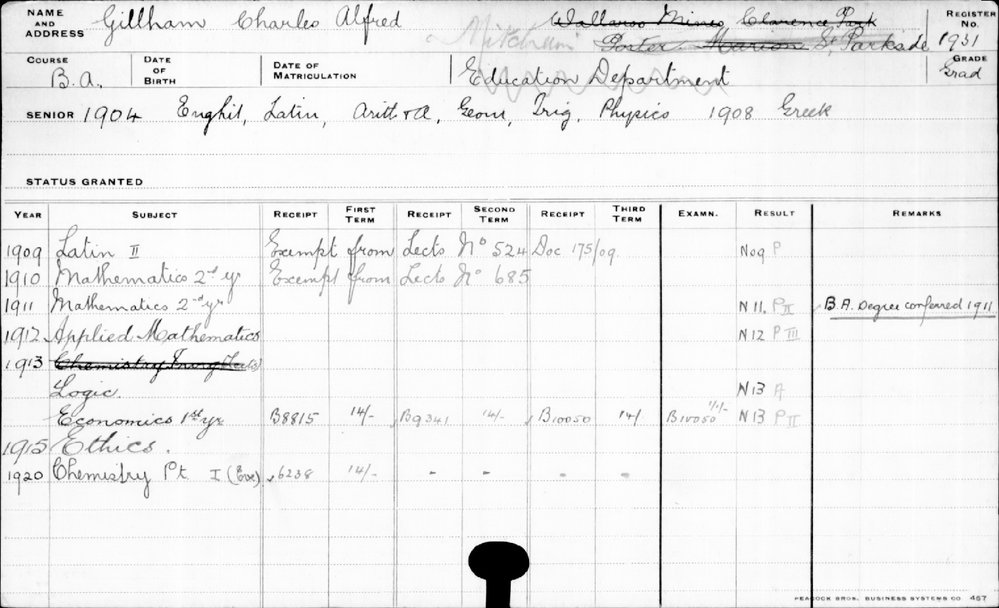 NAME AND ADDRESS Gillham Charles Alfred Mitcham Wallaroo Mines Clarence Park REGISTER No. 1931
Foster Marion St Parkside
COURSE B.A. DATE OF BIRTH DATE OF MATRICULATION Education Department GRADE Grad
SENIOR 1904 Enghit, Latin, Arith + A, Geom, Trig, Physics 1908 Greek
STATUS GRANTED
YEAR SUBJECT RECEIPT FIRST TERM RECEIPT SECOND TERM RECEIPT THIRD TERM EXAMN. RESULT REMARKS
1909 Latin II Exempt from Lects No 524 Doc 175/09. No9 P
1910 Mathematics 2nd yr Exempt from Lects No 685
1911 Mathematics 2nd yr N11. P II B.A. Degree conferred 1911
1912 Applied Mathematics N12 P III
1913 Chemistry
Logic. N13 A
Economics 1st yr B8815 14/- B9341 14/- B10050 14/ B10050 1/1/- N13 P II
1915 Ethics.
1920 Chemistry Pt. I (Eve) 6238 14/- - - - -
PEACOCK BROS. BUSINESS SYSTEMS CO. 457